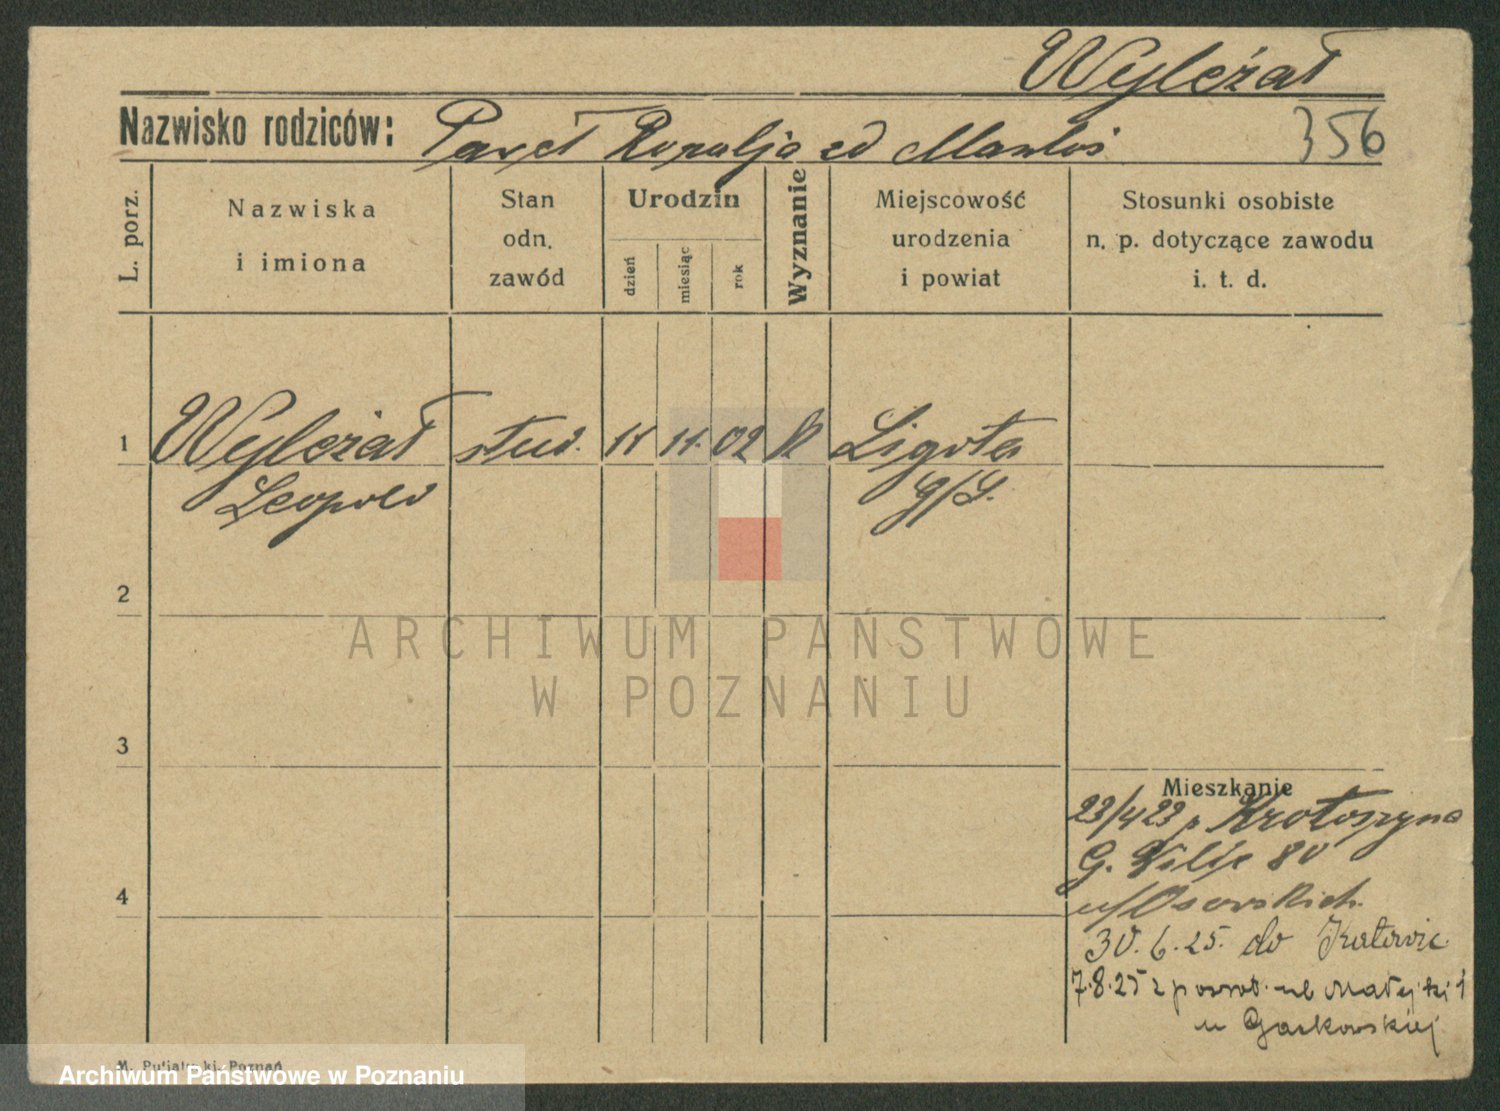 Wyleżał
Nazwisko rodziców: Paweł Rozalja zd
356
L. porz.
Nazwiska
i imiona
Stan
odn.
zawód
Urodzin
dzień
miesiąc
rok
Wyznanie
Miejscowość
urodzenia
i powiat
Stosunki osobiste
n. p. dotyczące zawodu
i. t. d.
1 Wyleżał stud. 11 11. 02 k Ligota
Leopold G/S.
2
ARCHIWUM PAŃSTWOWE
W POZNANIU
3
Mieszkanie
23/4 23 z Krotoszyna
G. Wilda 80
u/Osowskich.
4
30.6.25. do Katowic
7.8.25 z powrot. ul Matejki 1
u Gackowskiej
M. Putiatycki, Poznań
Archiwum Państwowe w Poznaniu